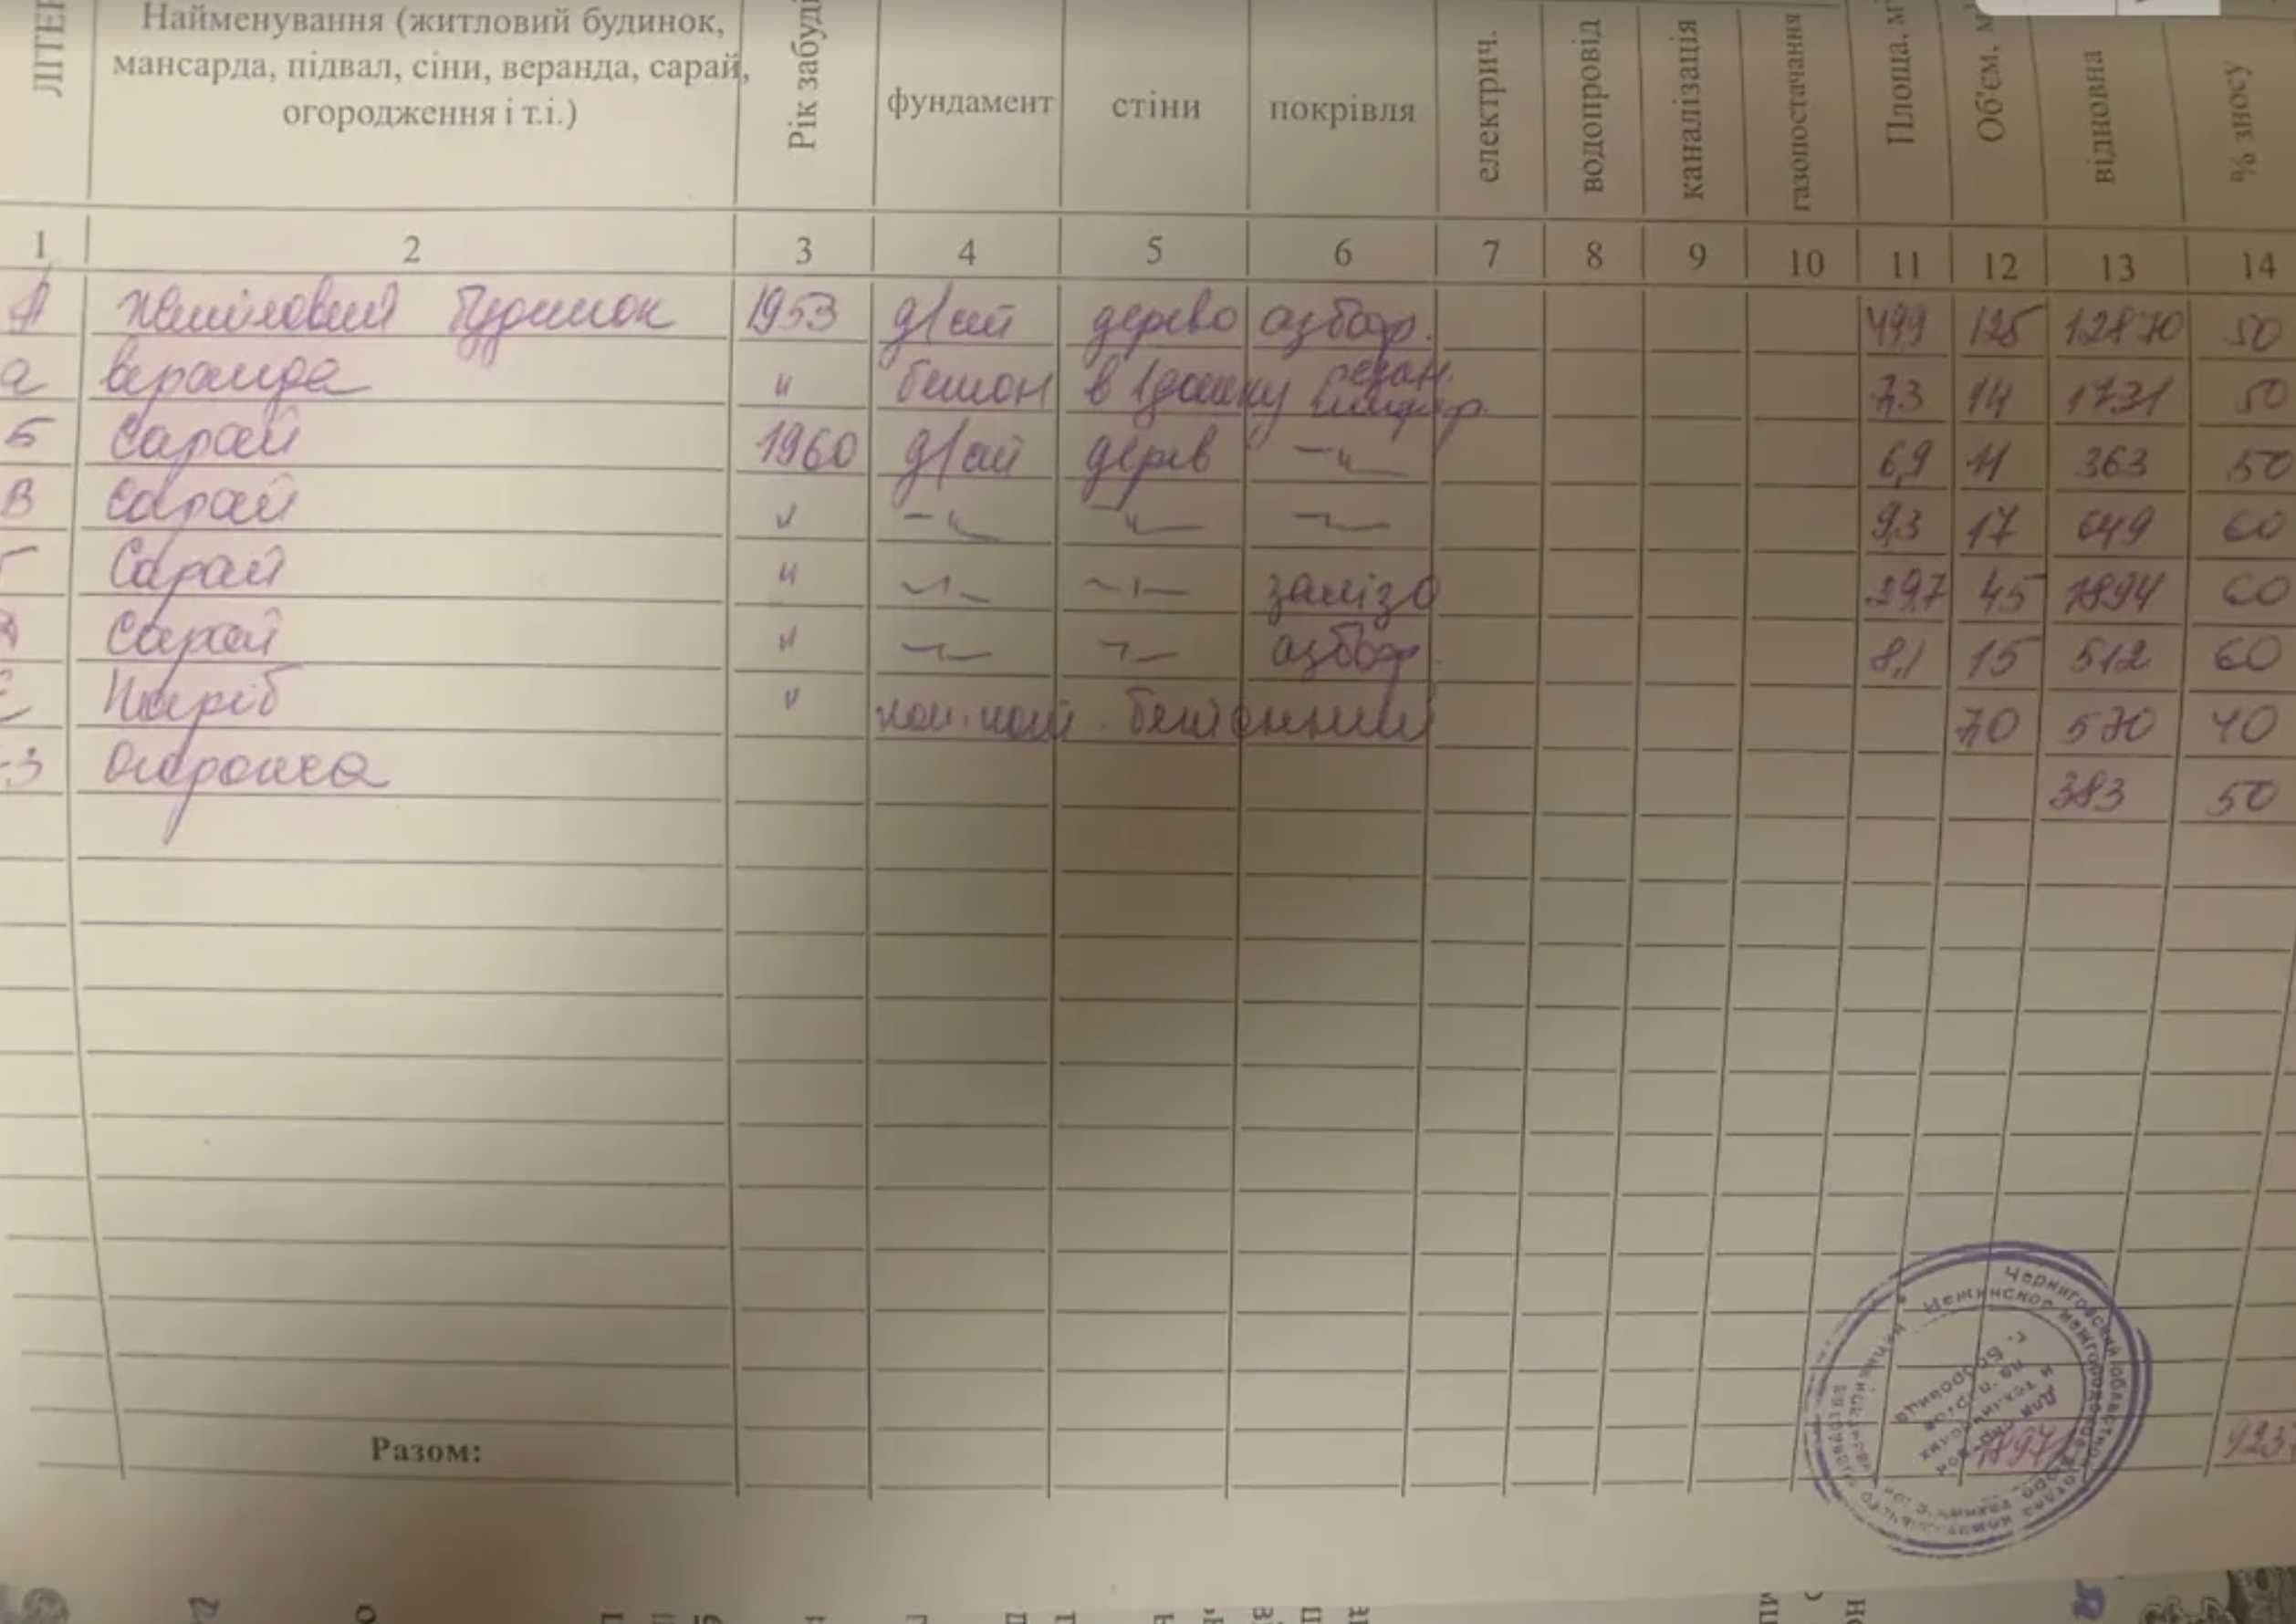 ЛІТЕР
Найменування (житловий будинок,
мансарда, підвал, сіни, веранда, сарай,
огородження і т.і.)
Рік забуді
фундамент
стіни
покрівля
електрич.
водопровід
каналізація
газопостачання
Площа, м
Об'єм, м
відновна
% зносу
1 2 3 4 5 6 7 8 9 10 11 12 13 14
А житловий будинок 1953 д/ст дерево азбоф. 49,9 125 12870 50
а веранда " бетон в 1дошку шифер. 7,3 14 1731 50
Б Сарай 1960 д/ст дерев —"— 6,9 11 363 50
В Сарай " —"— —"— —"— 9,3 17 649 60
Г Сарай " —"— —"— залізо 29,7 45 1894 60
Сарай " —"— —"— азбоф. 8,1 15 512 60
Погріб " бетонний 7,0 570 40
Огрожа 383 50
Разом:
Нежинское
г. Бобровица